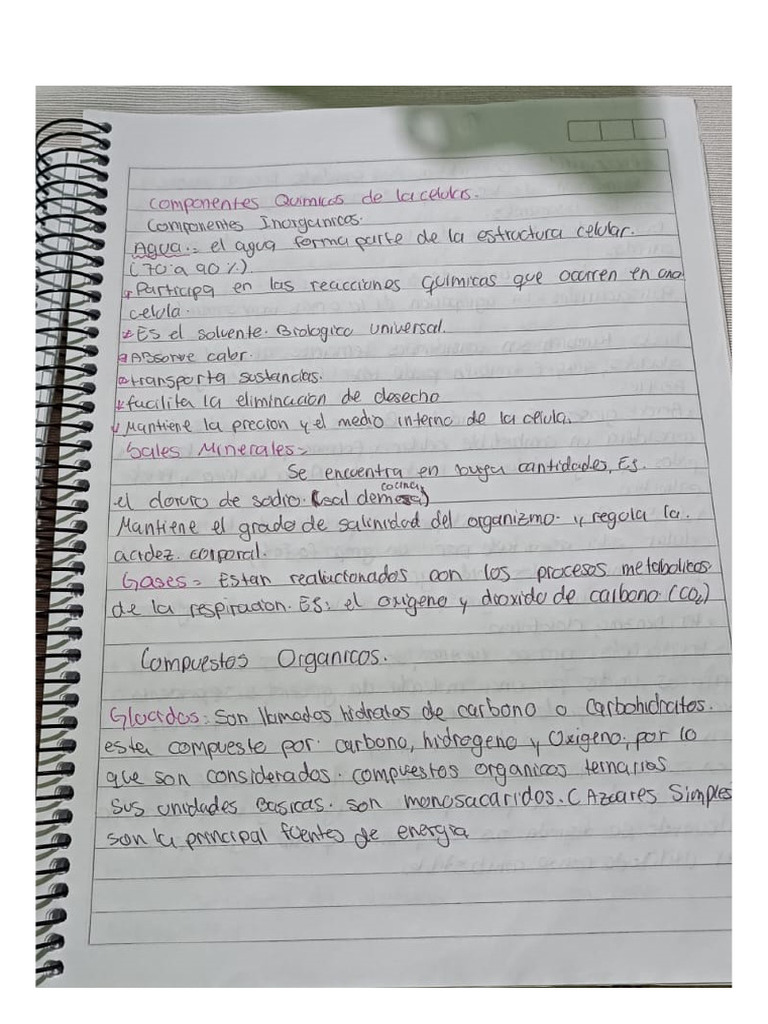 Componentes Quimicos de la celulas.
Componentes Inorganicos.
Agua.: el agua forma parte de la estructura celular.
(70 a 90%).
Participa en las reacciones Quimicas que ocurren en
celula.
Es el solvente Biologico universal.
Absorve calor.
transporta sustancias.
facilita la eliminacion de desecho
Mantiene la precion y el medio interno de la celula.
Sales Minerales=
Se encuentra en cantidades, Es.
cocina
el cloruro de sodio. (sal de mesa)
Mantiene el grado de salinidad del organizmo. y regola la.
acidez corporal.
Gases= Estan realucionados con los procesos metabolicos
de la respiracion. ES: el oxigeno y dioxido de carbono (CO2)
Compuestos Organicos.
Glucidos: Son llamados hidratos de carbono o Carbohidratos.
esta compuesto por: carbono, hidrogeno y Oxigeno, por lo
que son considerados. compuestos organicos ternarios
Sus unidades Basicas. son monosacaridos. (Azcares Simples
son la principal fuentes de energia